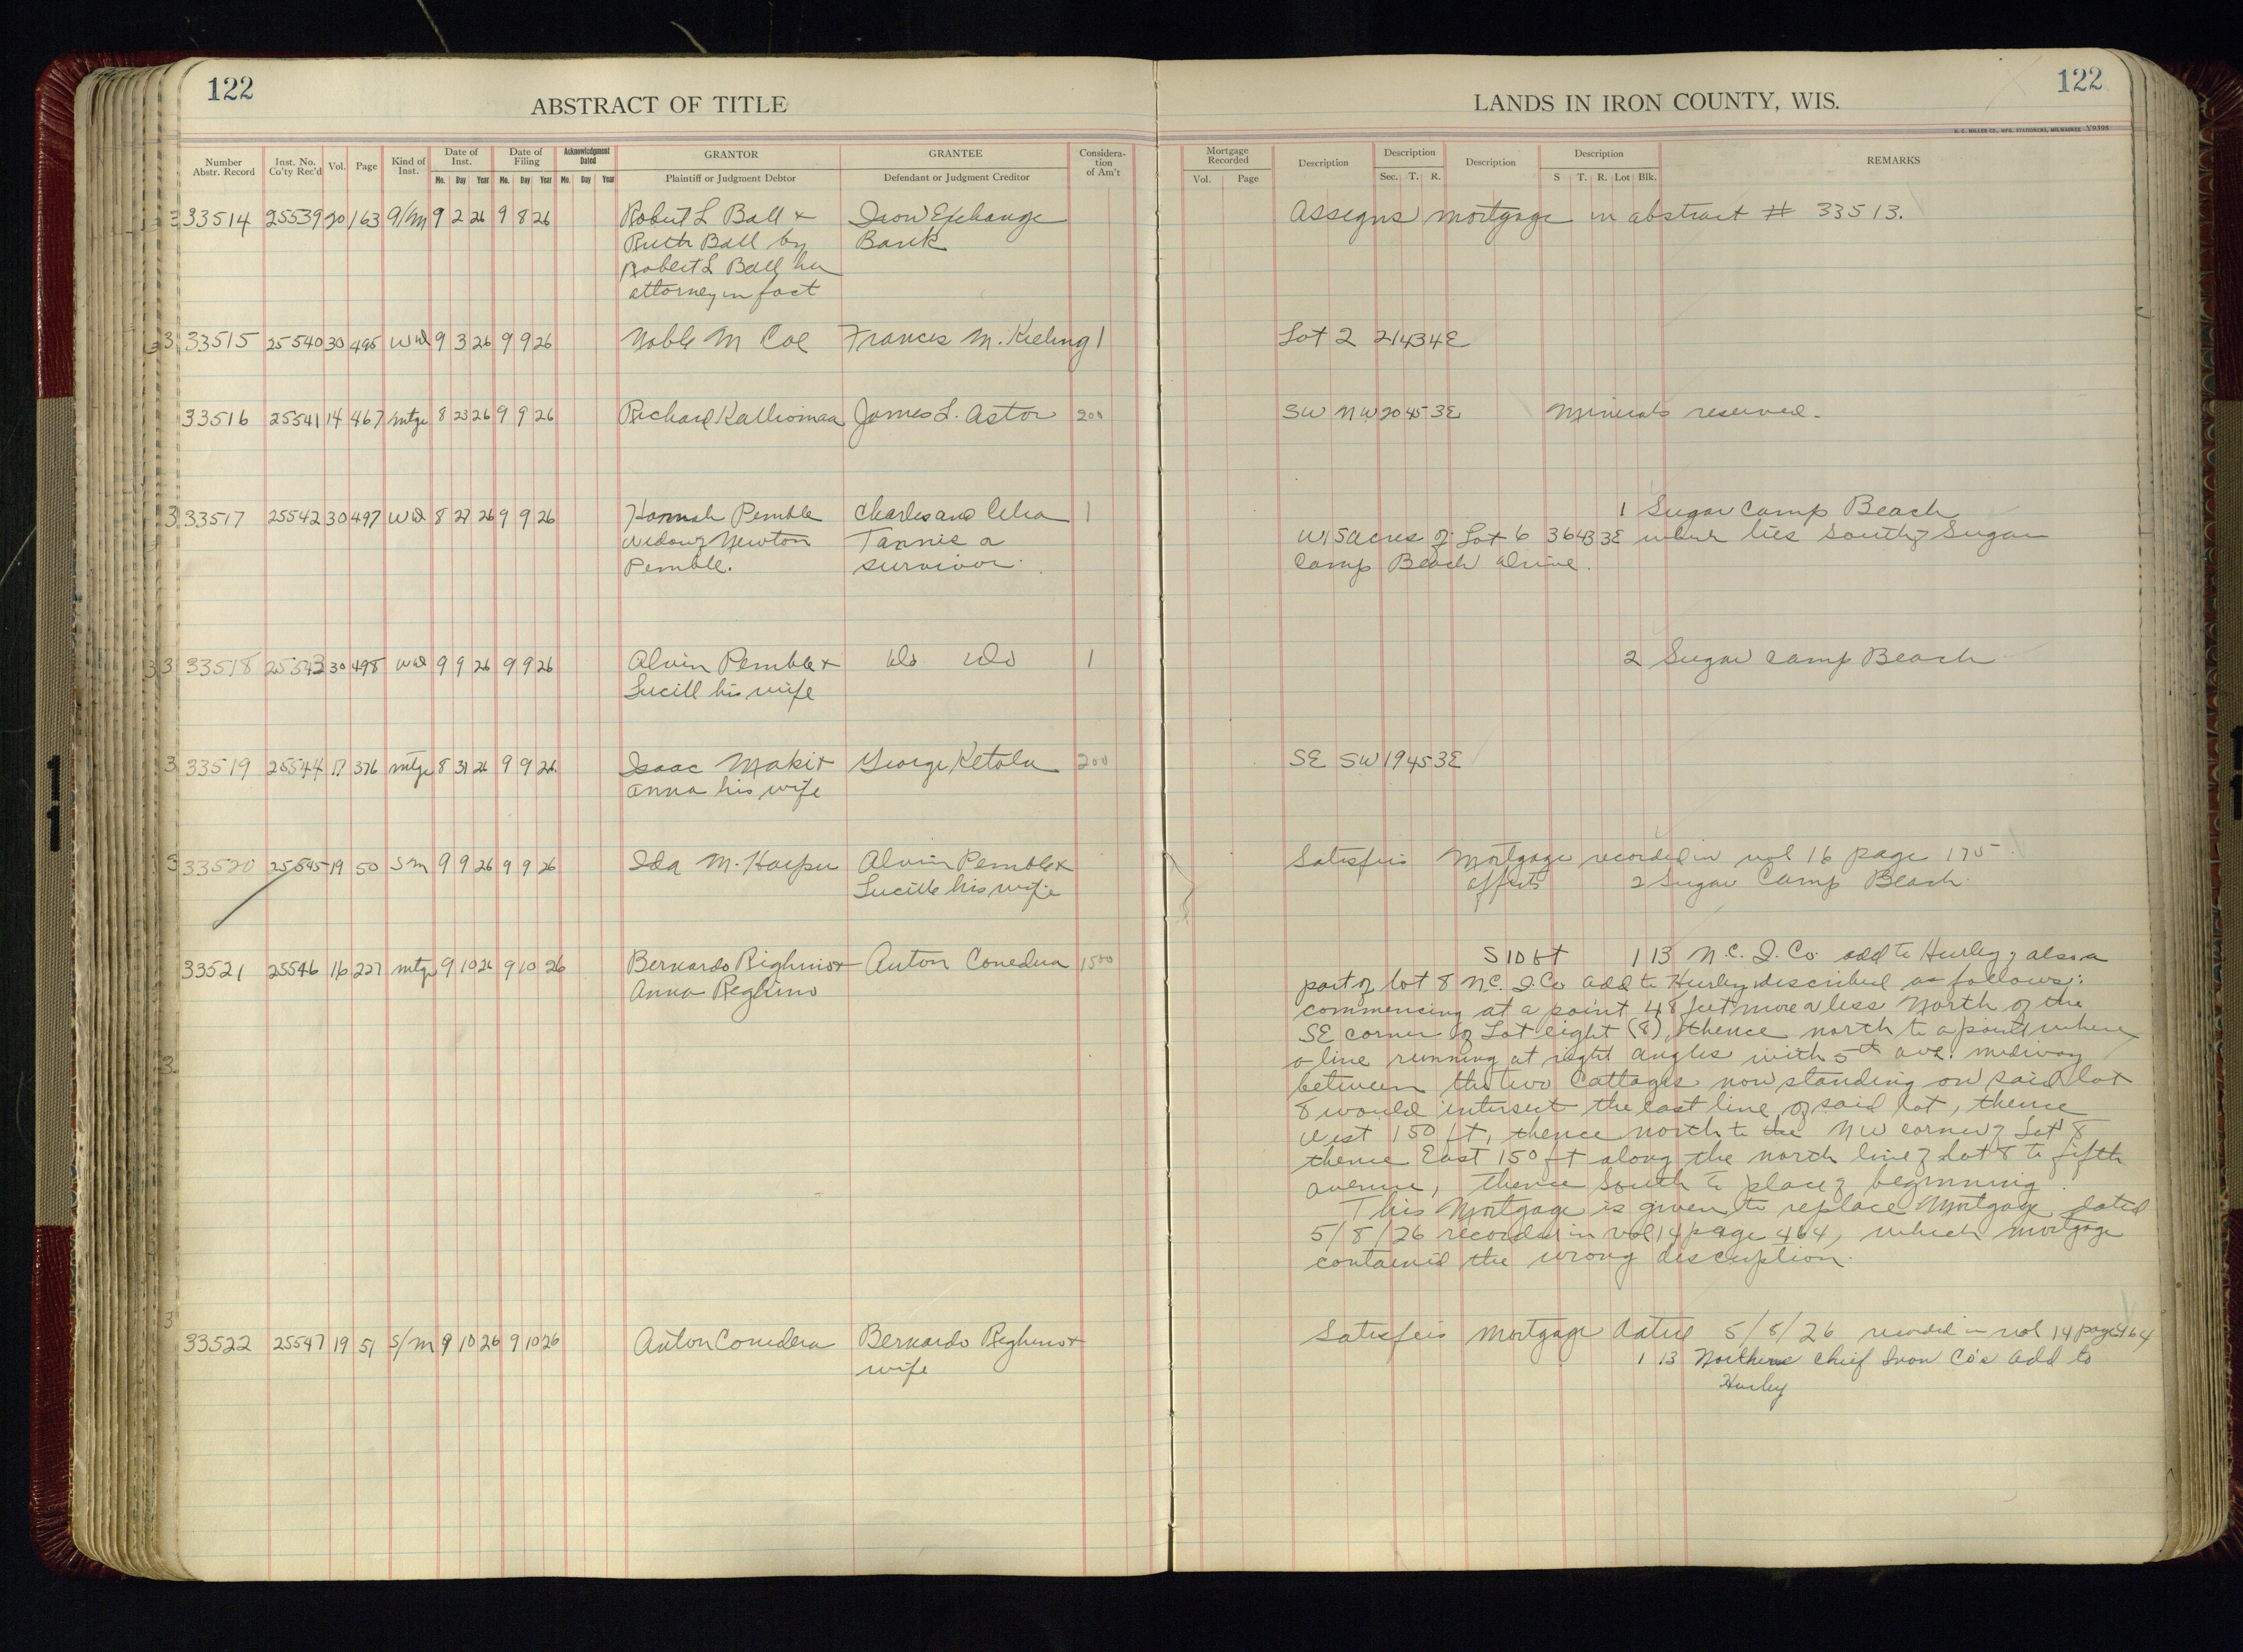 122
ABSTRACT OF TITLE
LANDS IN IRON COUNTY, WIS.
122
H. C. MILLER CO., MFG. STATIONERS, MILWAUKEE Y9398
Number Abstr. Record
Inst. No. Co'ty Rec'd
Vol.
Page
Kind of Inst.
Date of Inst.
Mo. Day Year
Date of Filing
Mo. Day Year
Acknowledgment Dated
Mo. Day Year
GRANTOR
Plaintiff or Judgment Debtor
GRANTEE
Defendant or Judgment Creditor
Considera-
tion
of Am't
Mortgage Recorded
Vol. Page
Description
Description
Sec. T. R.
Description
Description
S T. R. Lot Blk.
REMARKS
3 33514 25539 20 163 a/m 9 2 26 9 8 26 Robert L Ball & Iron Exchange Assigns mortgage in abstract # 33513.
Ruth Ball by Bank
Robert L Ball her
attorney in fact
3 33515 25540 30 495 WD 9 3 26 9 9 26 Noble M Coe Frances M. Kieling 1 Lot 2 21 43 4E
33516 25541 14 467 mtge 8 23 26 9 9 26 Richard Kallioman James L. Astor 200 SW NW 20 45 3E Minerals reserved.
3 33517 25542 30 497 WD 8 27 26 9 9 26 Hannah Pemble Charles and Celia 1 1 Sugar Camp Beach
widow of Newton Tannis a W 15 acres of Lot 6 36 43 3E which lies South of Sugar
Pemble. survivor. Camp Beach drive.
33 33518 25543 30 498 WD 9 9 26 9 9 26 Alvin Pemble & do do 1 2 Sugar Camp Beach
Lucill his wife
3 33519 25544 17 376 mtge 8 31 26 9 9 26 Isaac Maki & George Ketola 200 SE SW 19 45 3E
Anna his wife
3 33520 25545 19 50 SM 9 9 26 9 9 26 Ida M. Harper Alvin Pemble & Satisfies Mortgage recorded in vol 16 page 175
Lucille his wife affects 2 Sugar Camp Beach
33521 25546 16 227 mtge 9 10 26 9 10 26 Bernardo Righino & Anton Conedera 1500 S 10 ft 1 13 N.C. I. Co. add to Hurley; also a
Anna Reghino part of lot 8 N.C. I. Co add to Hurley described as follows:
commencing at a point 48 feet more or less North of the
SE corner of Lot eight (8), thence north to a point where
3 a line running at right angles with 5th ave. midway
between the two Cottages now standing on said lot
8 would intersect the east line of said lot, thence
West 150 ft, thence north to the NW corner of Lot 8
thence East 150 ft along the north line of Lot 8 to fifth
avenue, thence South to place of beginning.
This Mortgage is given to replace Mortgage dated
5/8/26 recorded in vol 14 page 464, which mortgage
contained the wrong description.
3
33522 25547 19 51 S/M 9 10 26 9 10 26 Anton Conedera Bernardo Righino & Satisfies Mortgage dated 5/8/26 recorded in vol 14 page 464
wife 1 13 Northern Chief Iron Co's Add to
Hurley